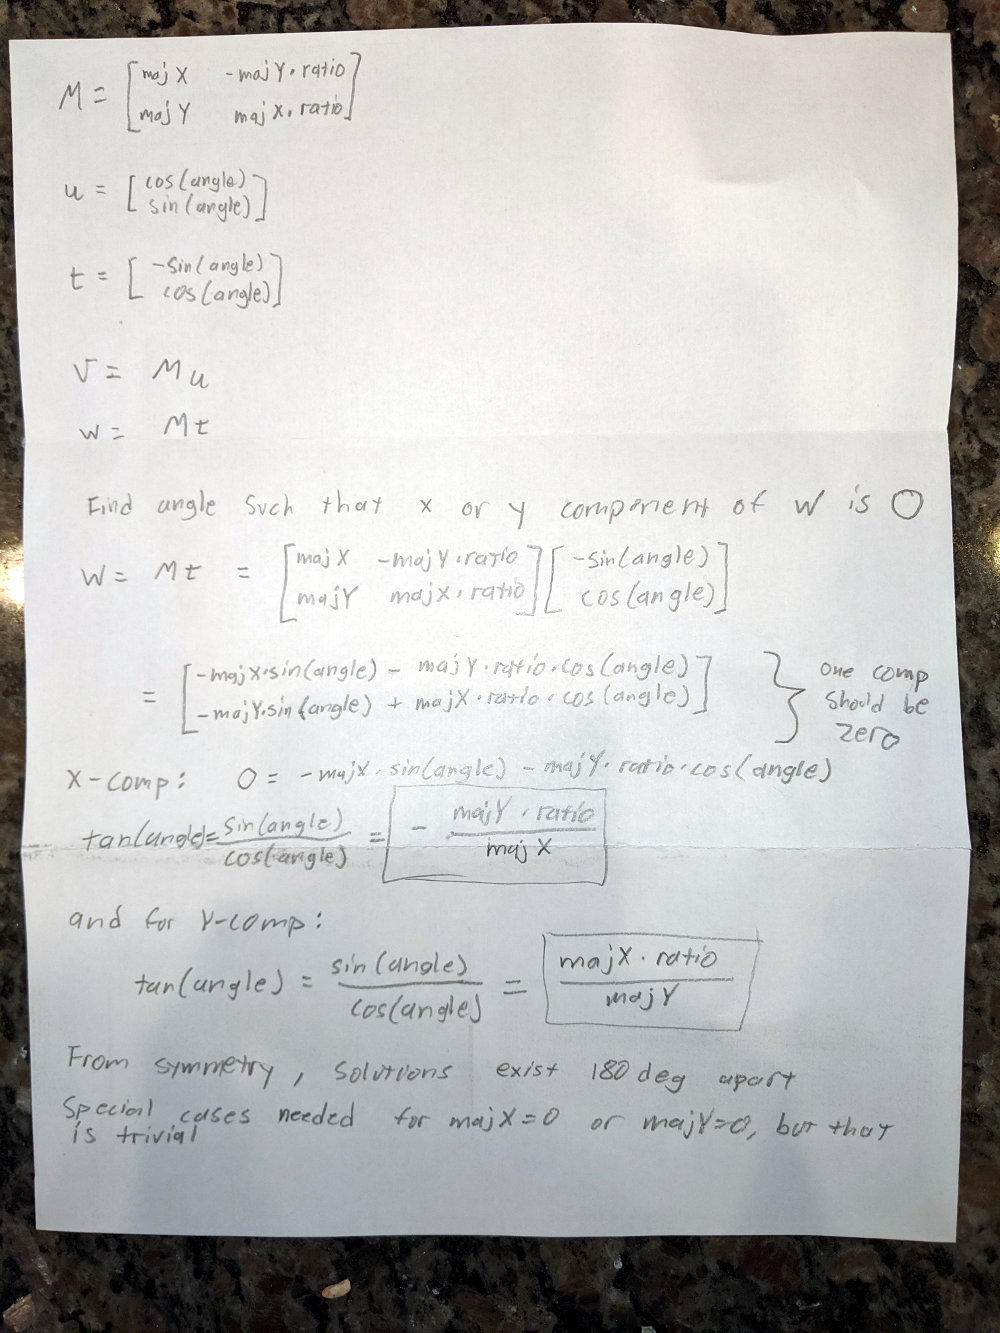 M = [ majX -majY·ratio
majY majX·ratio ]
u = [ cos(angle)
sin(angle) ]
t = [ -sin(angle)
cos(angle) ]
v = Mu
w = Mt
Find angle such that x or y component of w is 0
w = Mt = [ majX -majY·ratio ] [ -sin(angle) ]
[ majY majX·ratio ] [ cos(angle) ]
= [ -majX·sin(angle) - majY·ratio·cos(angle) ] } one comp
[ -majY·sin(angle) + majX·ratio·cos(angle) ] should be
zero
X-comp: 0 = -majX·sin(angle) - majY·ratio·cos(angle)
tan(angle) = sin(angle) / cos(angle) = - majY·ratio / majX
and for Y-comp:
tan(angle) = sin(angle) / cos(angle) = majX·ratio / majY
From symmetry, solutions exist 180 deg apart
Special cases needed for majX=0 or majY=0, but that
is trivial